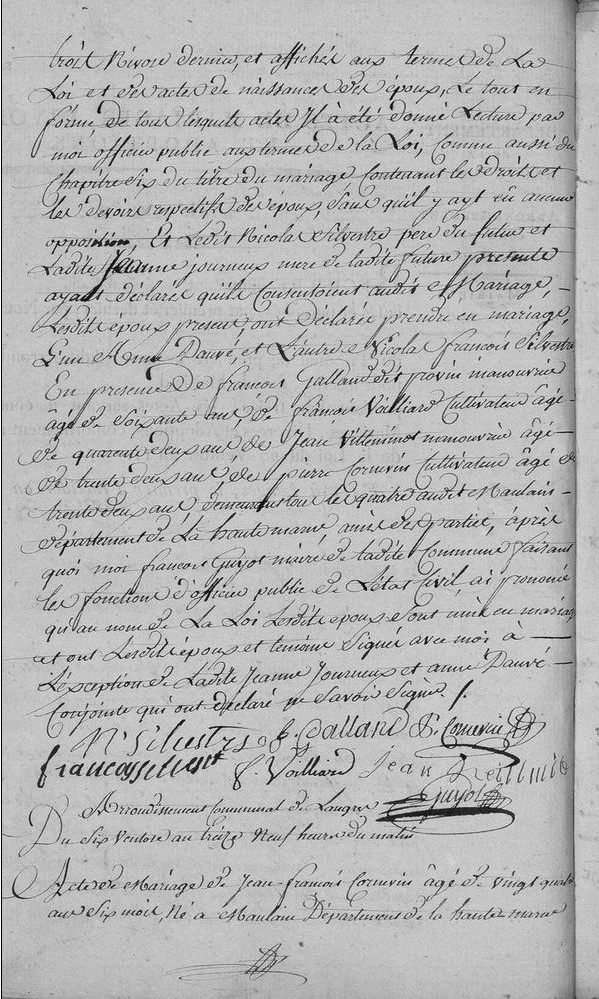 trois Nivose dernier, et affichés aux termes de La
Loi et des actes de naissances des époux, Le tout en
forme, de tous lesquels actes Il à été donné Lecture par
moi officier public aux termes de la Loi, comme aussi du
Chapitre Six du titre du mariage Contenant les droits et
les devoirs respectifs des époux, Sans qu'il y ayt eu aucune
opposition, Et Ledit Nicolas Silvestre pere du futur et
Ladite Jeanne journeux mere de ladite future présente
ayant déclarés qu'ils Consentoient audit Mariage, -
Lesdits époux present ont declarés prendre en mariage,
L'un Anne Dauvé, et L'autre Nicolas François Silvestre
En presence de françois Galland dit provin manouvrier
âgé de Soixante ans de françois Voilliard Cultivateur âgé
de quarente deux ans, de Jean Villeminot manouvrier âgé -
de trente deux ans, de pierre Cornevin Cultivateur âgé de
trente deux ans, demeurans tous les quatre audit Maulain -
département de La haute marne, amis des parties, après
quoi moi françois Guyot maire de ladite Commune faisant
les fonctions d'officier public de L'état Civil, ai prononcé
qu'au nom de La Loi Lesdits époux Sont unis en mariage
et ont Lesdits époux et temoins Signés avec moi à —
L'exception de Ladite Jeanne Journeux et anne Dauvé -
Conjointe qui ont declaré ne Savoir Signer ./.
N. Silvestre f. Galland P. Cornevin
francois silvestre f. Voilliard Jean
Guyot
Arrondissement Communal de Langres
Du Six Ventose an treize Neuf heures du matin
Acte de Mariage de Jean-françois Cornevin âgé de vingt quatre
ans Six mois, Né a Maulain Département de la haute-marne